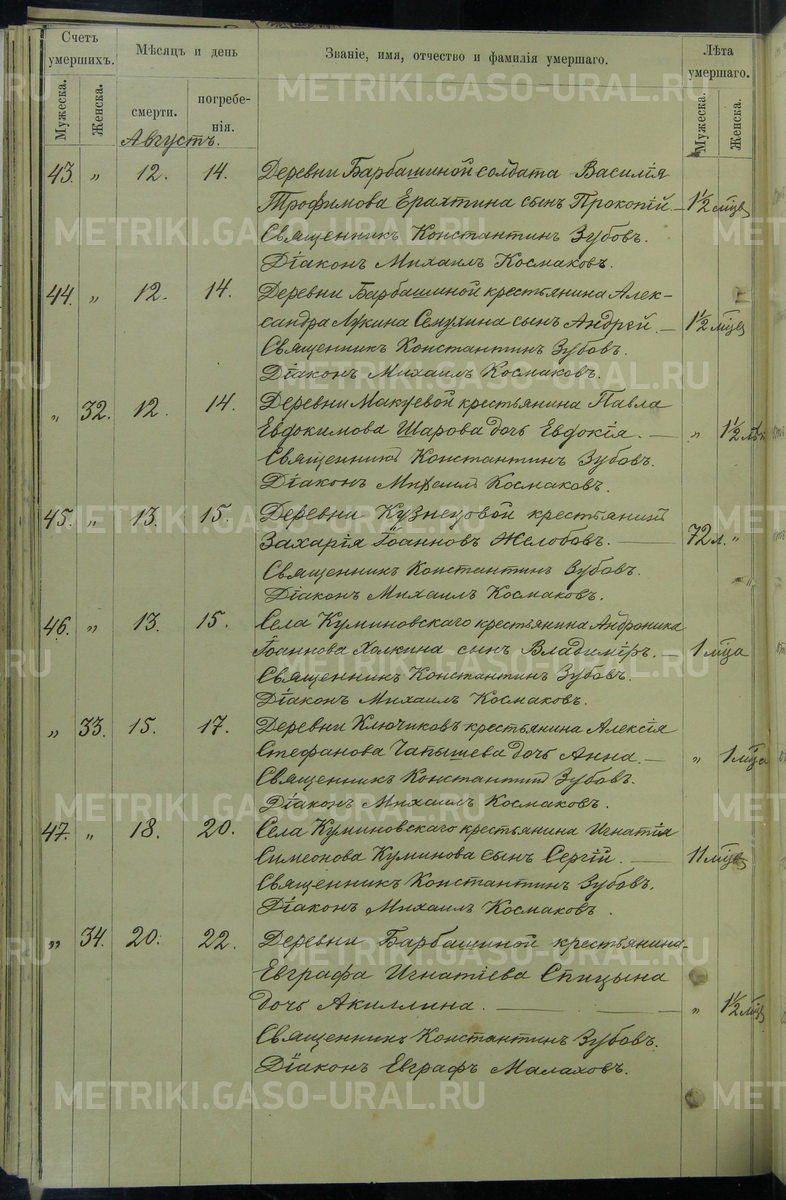 Счетъ умершихъ.
Мѣсяцъ и день
Званіе, имя, отчество и фамилія умершаго.
Лѣта умершаго.
Мужеска.
Женска.
смерти.
погребе-
нія.
Мужеска.
Женска.
Августъ.
43. „ 12. 14. Деревни Барбашиной солдата Василія
Трофимова Ерахтина сынъ Прокопій — 1½ мѣц
Священникъ Константинъ Зубовъ.
Діаконъ Михаилъ Космаковъ.
44. „ 12. 14. Деревни Барбашиной крестьянина Алек-
сандра Лукина сынъ Андрей. — 1½ мѣц
Священникъ Константинъ Зубовъ.
Діаконъ Михаилъ Космаковъ.
„ 32. 12. 14. Деревни Макуевой крестьянина Павла
Евдокимова Шарова дочь Евдокія. — „ 1½
Священникъ Константинъ Зубовъ.
Діаконъ Михаилъ Космаковъ.
45. „ 13. 15. Деревни Кузнецовой крестьянинъ
Захарія Іоанновъ Желобовъ. — 72 л. „
Священникъ Константинъ Зубовъ.
Діаконъ Михаилъ Космаковъ.
46. „ 13. 15. Села Куминовскаго крестьянина Андроника
Іоаннова Холкина сынъ Владиміръ. — 1 мѣца
Священникъ Константинъ Зубовъ.
Діаконъ Михаилъ Космаковъ.
„ 33. 15. 17. Деревни Ключиковъ крестьянина Алексія
Стефанова Чапышева дочь Анна. — „ 1 мѣца
Священникъ Константинъ Зубовъ.
Діаконъ Михаилъ Космаковъ.
47. „ 18. 20. Села Куминовскаго крестьянина Игнатія
Симеонова Куминова сынъ Сергій. — 11 мѣц
Священникъ Константинъ Зубовъ.
Діаконъ Михаилъ Космаковъ.
„ 34. 20. 22. Деревни Барбашиной крестьянина
Евграфа Игнатіева Спицына
дочь Акиллина. — „ 1½ мѣц
Священникъ Константинъ Зубовъ.
Діаконъ Евграфъ Малаховъ.
METRIKI.GASO-URAL.RU